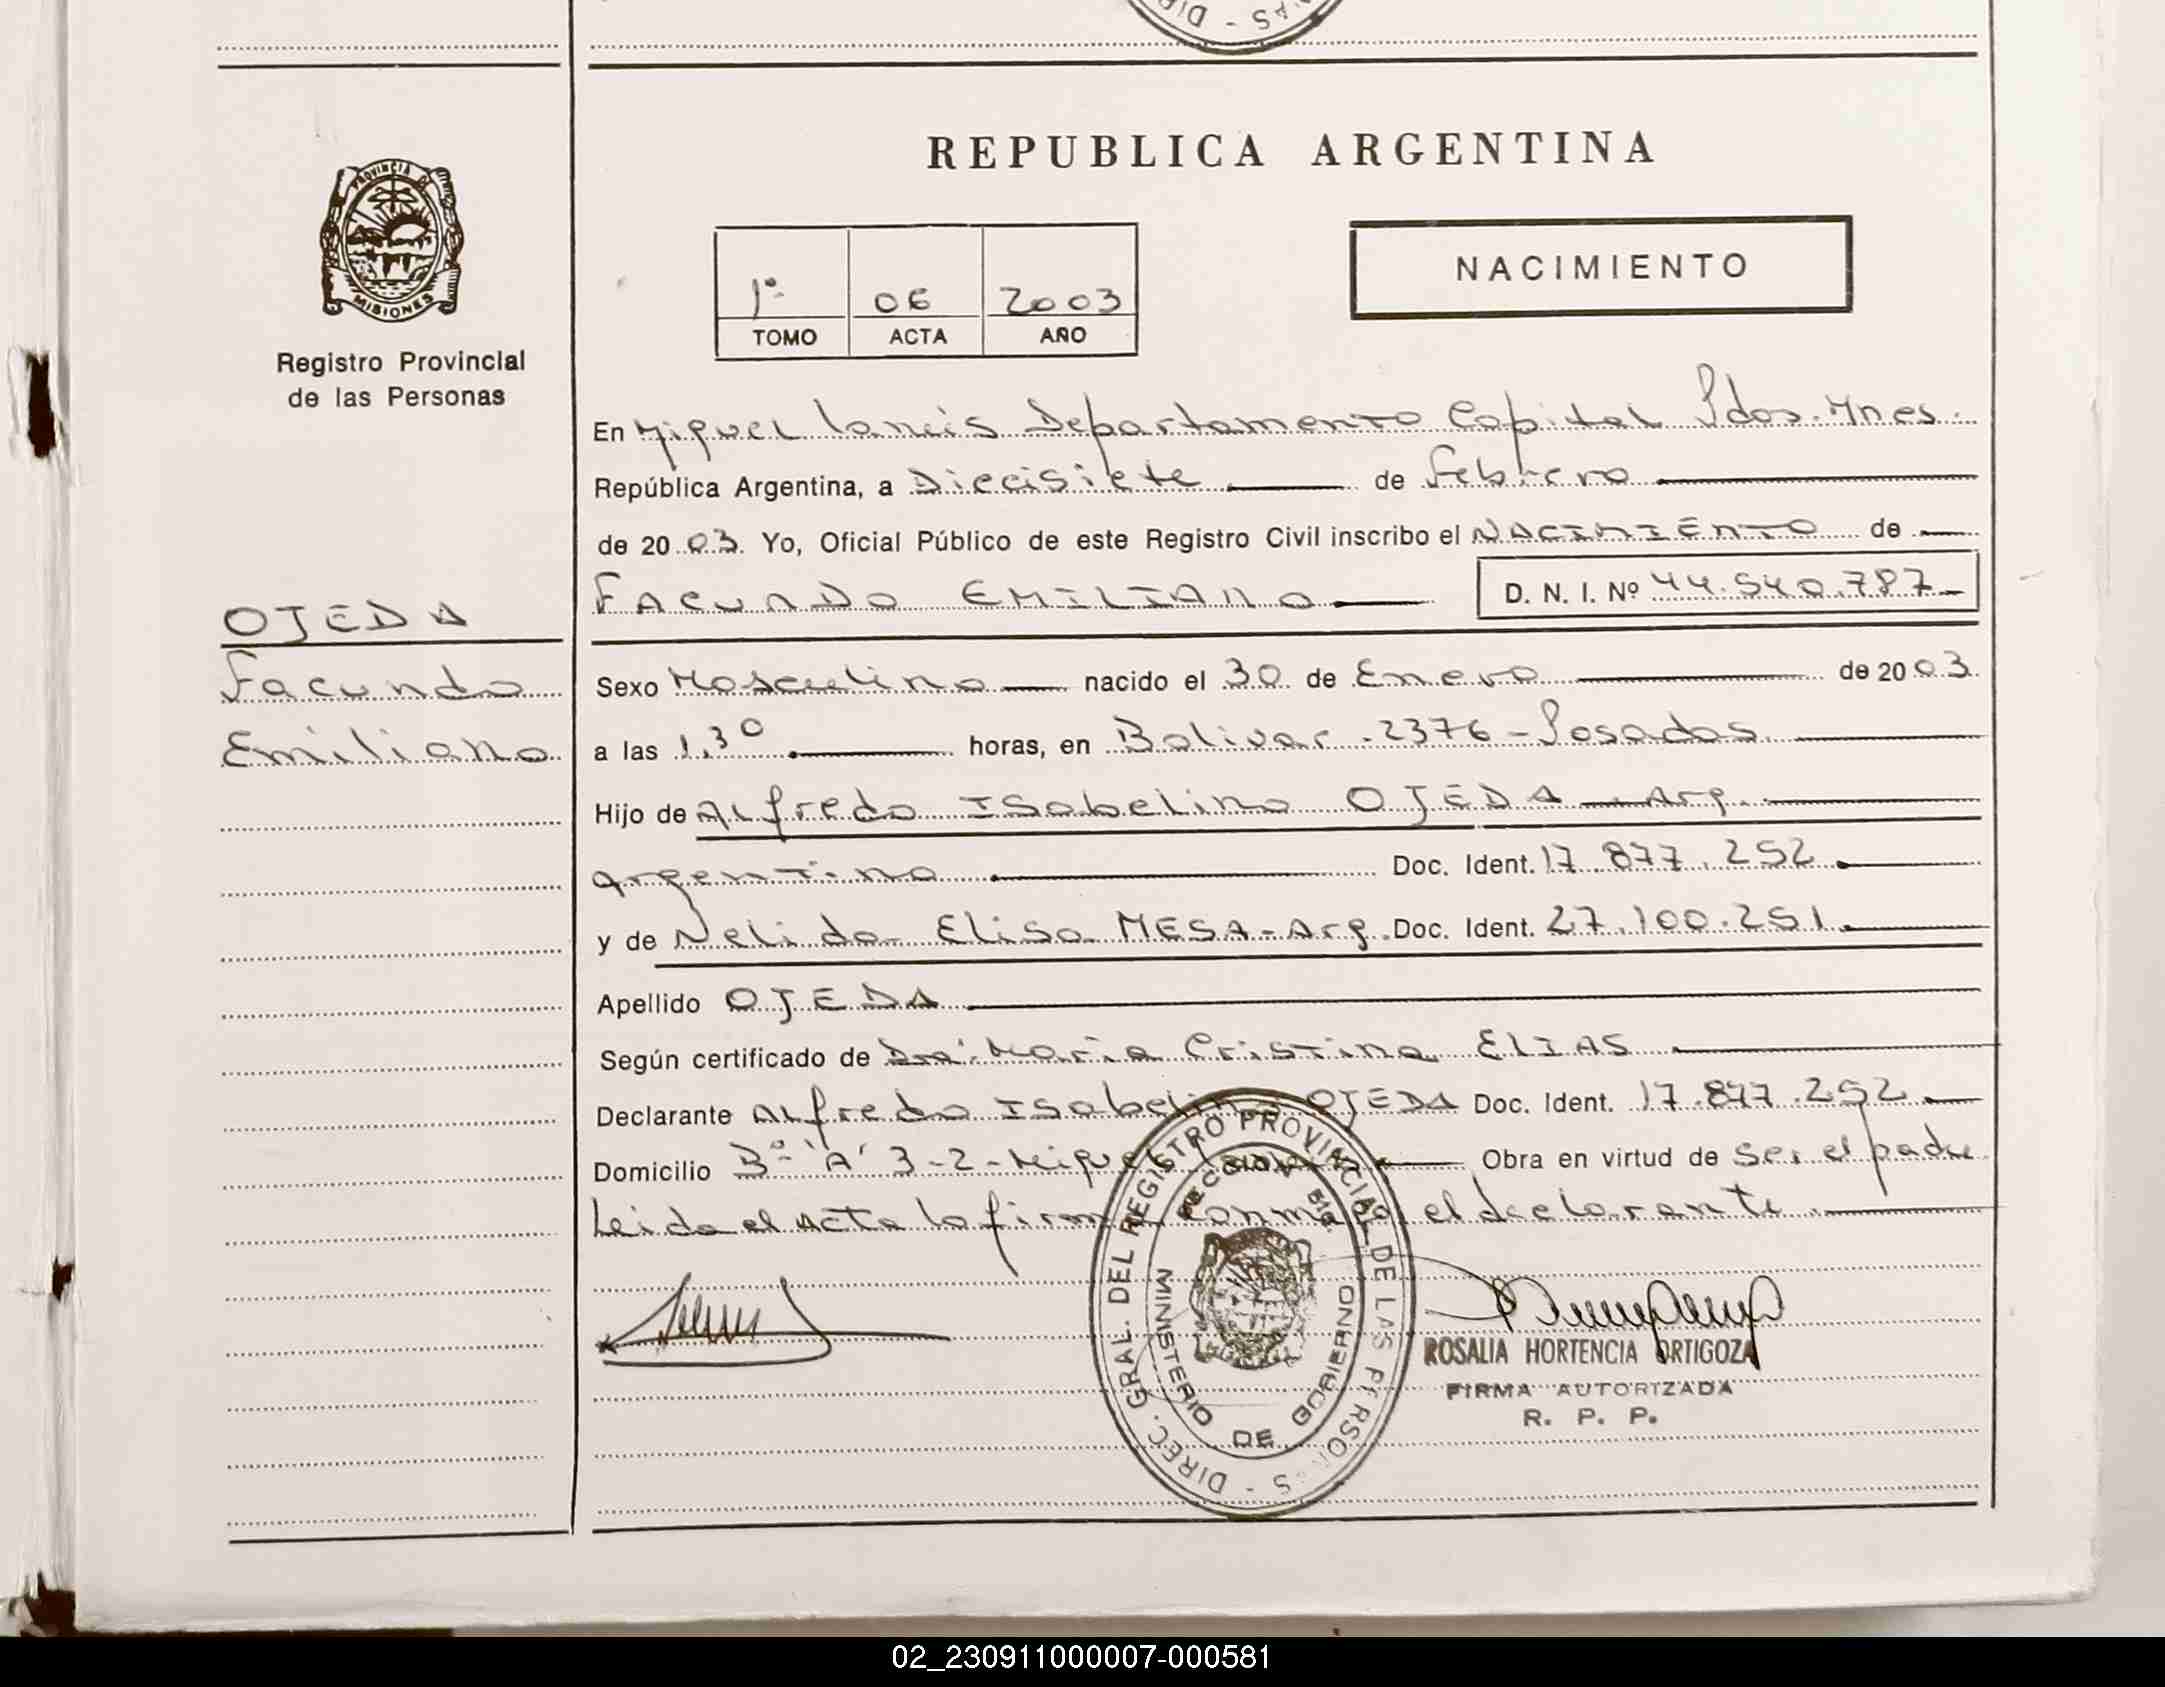 REPUBLICA ARGENTINA
PROVINCIA DE MISIONES
Registro Provincial
de las Personas
1º 06 2003
TOMO ACTA AÑO
NACIMIENTO
En Miguel Lanús Departamento Capital Pdas. Mnes.
República Argentina, a Diecisiete de Febrero
de 2003. Yo, Oficial Público de este Registro Civil inscribo el NACIMIENTO de
FACUNDO EMILIANO D. N. I. Nº 44.540.787
OJEDA
Facundo
Emiliano
Sexo Masculino nacido el 30 de Enero de 2003
a las 1,30 horas, en Bolivar 2376 - Posadas
Hijo de Alfredo Isabelino OJEDA - Arg.
argentino Doc. Ident. 17.877.252
y de Nelida Elisa MESA - Arg. Doc. Ident. 27.100.251
Apellido OJEDA
Según certificado de Dra. Maria Cristina ELIAS
Declarante Alfredo Isabelino OJEDA Doc. Ident. 17.877.252
Domicilio Bº "A" 3-2 - Miguel Lanús Obra en virtud de ser el padre
Leida el Acta la firma conmigo el declarante
DIREC. GRAL. DEL REGISTRO PROVINCIAL DE LAS PERSONAS
MINISTERIO DE GOBIERNO
ROSALIA HORTENCIA ORTIGOZA
FIRMA AUTORIZADA
R. P. P.
02_230911000007-000581